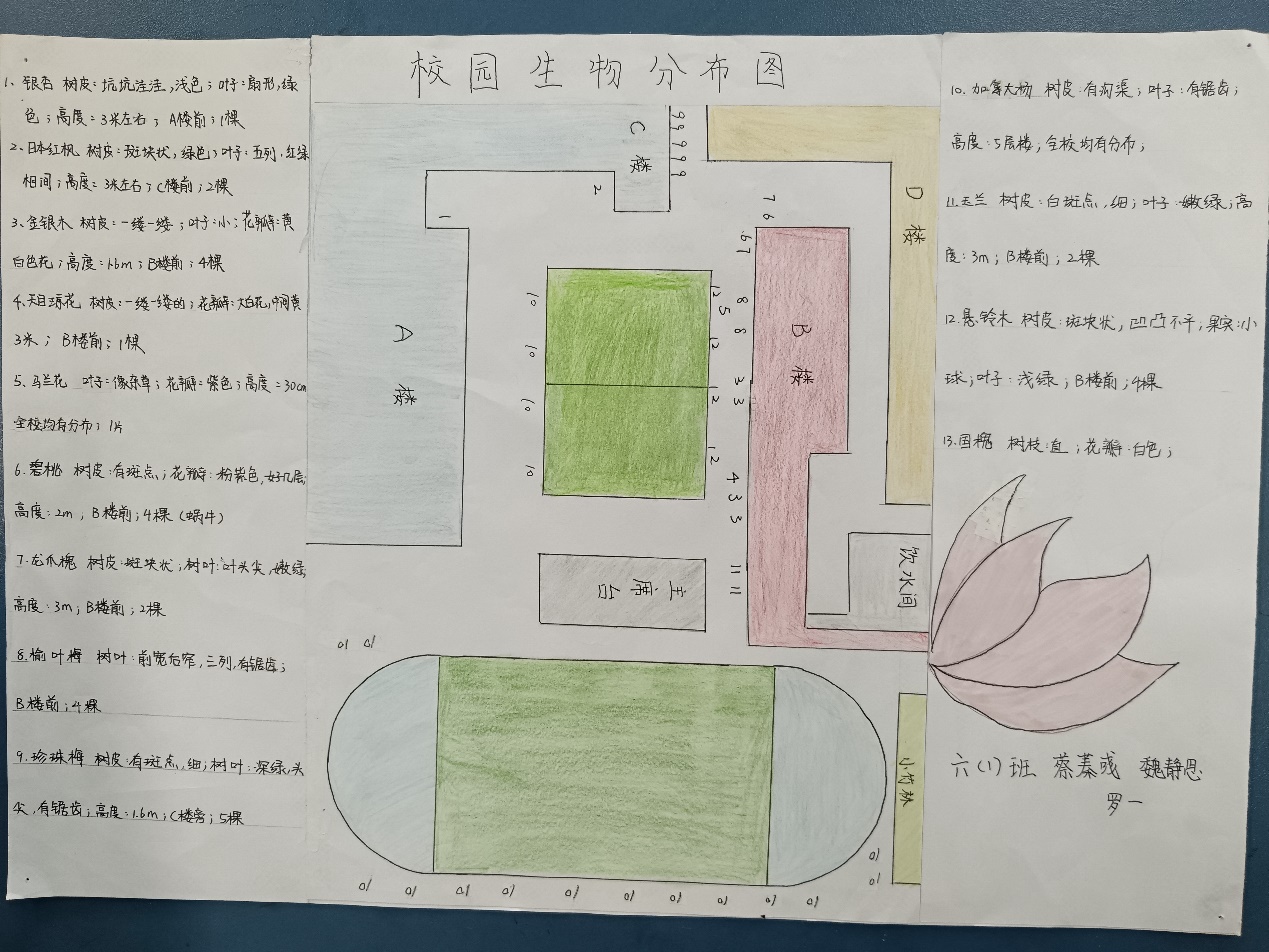 校园生物分布图
1、银杏 树皮:坑坑洼洼,浅色;叶子:扇形,绿
色;高度=3米左右;A楼前;1棵
2、日本红枫 树皮:斑块状,绿色;叶子:五列,红绿
相间;高度:3米左右;C楼前;2棵
3、金银木 树皮:一缕一缕;叶子:小;花瓣:黄
白色花;高度:1.6m;B楼前;4棵
4、天目琼花 树皮:一缕一缕的;花瓣:大白花,中间黄
3米;B楼前;1棵
5、马兰花 叶子:像杂草;花瓣=紫色;高度=30cm
全校均有分布;1片
6、碧桃 树皮:有斑点;花瓣:粉紫色,好几层;
高度:2m,B楼前;4棵(蜗牛)
7、龙爪槐 树皮:斑块状;树叶:叶头尖,嫩绿;
高度:3m;B楼前;2棵
8、榆叶梅 树叶:前宽后窄,三列,有锯齿;
B楼前;4棵
9、珍珠梅 树皮:有斑点,细;树叶:深绿,头
尖,有锯齿;高度:1.6m;C楼旁;5棵
C楼
9 9 9 9 9
2
1
D楼
7 6
6 7
A楼
B楼
10
10
10
10
12
5
12
12
12
8
8
3
3
4
3
3
11
11
主席台
饮水间
10 10
小竹林
10
10
10 10 10 10 10 10 10 10 10
10、加拿大杨 树皮:有沟渠;叶子:有锯齿;
高度:5层楼;全校均有分布;
11、玉兰 树皮:白斑点,细;叶子:嫩绿;高
度:3m;B楼前;2棵
12、悬铃木 树皮:斑块状,凹凸不平;果实:小
球;叶子:浅绿;B楼前;4棵
13、国槐 树枝:直;花瓣:白色;
六(1)班 蔡蓁彧 魏静思
罗一